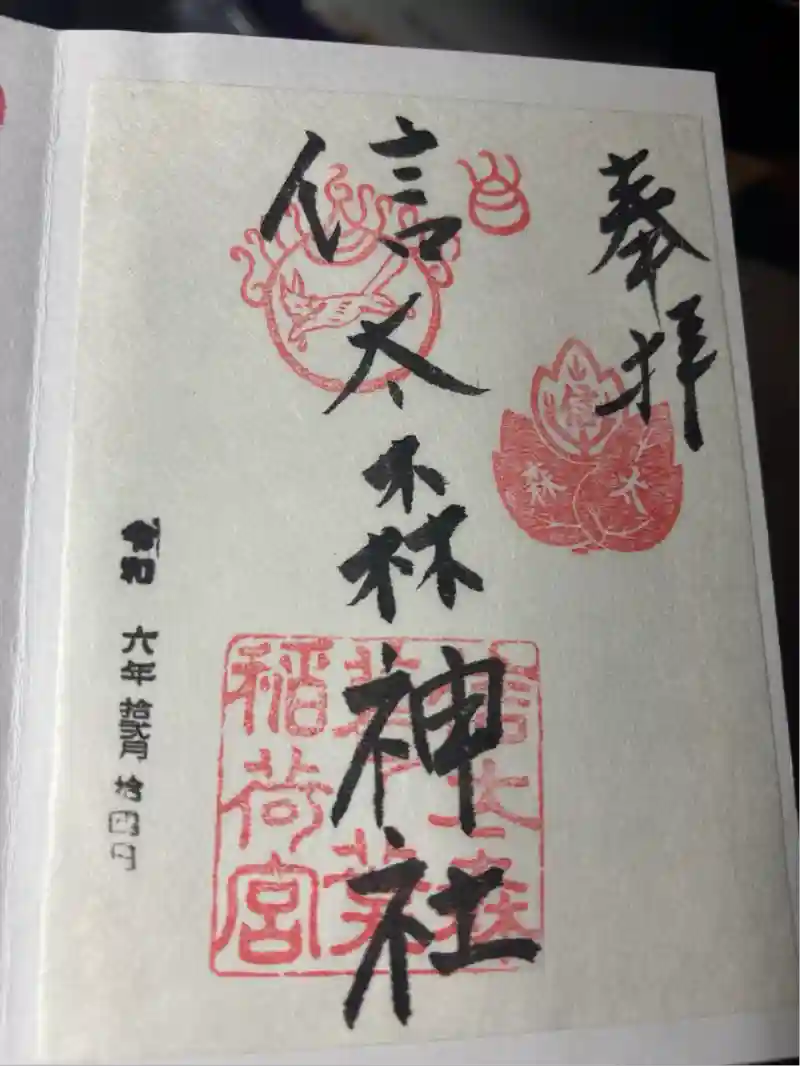 奉拝
信太森
信太森神社
信太森
葛葉
稲荷宮
令和 六年拾弐月拾四日